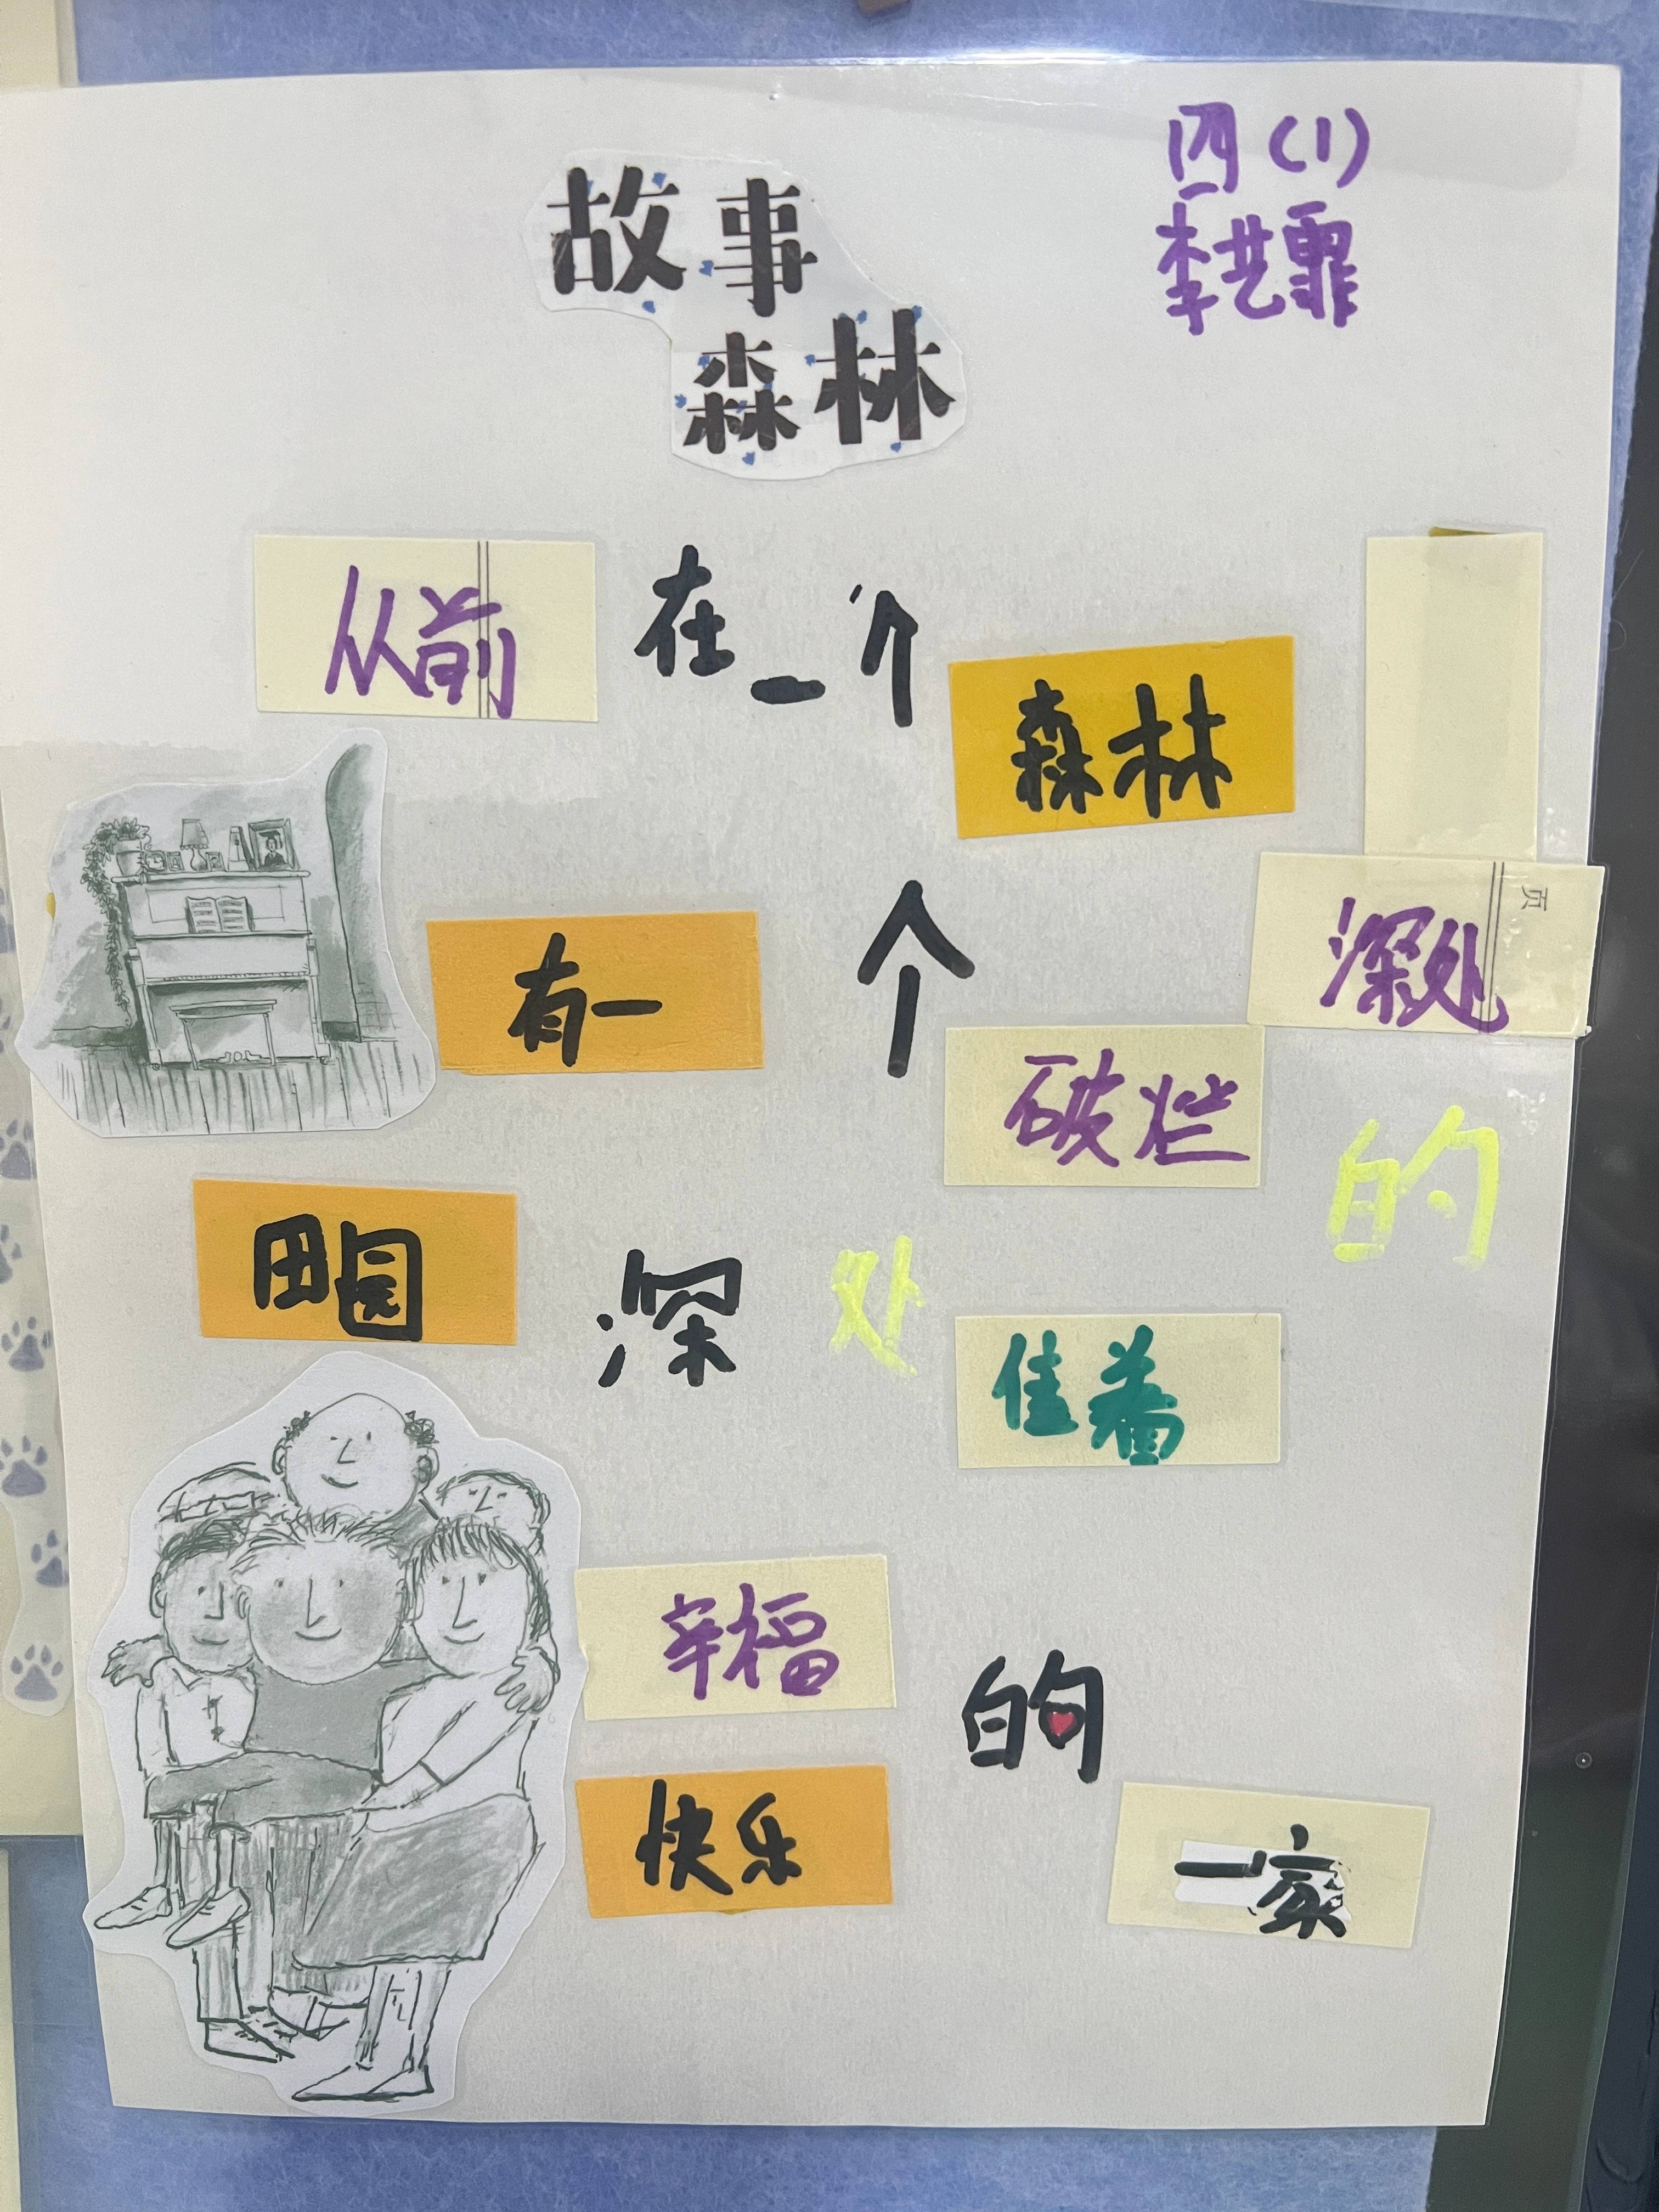 四(1)
李艺霏
故事
森林
从前 在一个 森林
深处
有一 个 破烂 的
田园 深处 佳着
幸福 的
快乐 一家
页